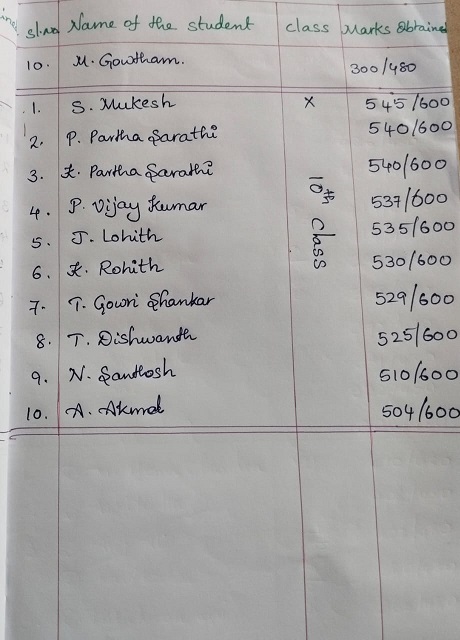 Sl.no Name of the student class Marks Obtained
10. M. Gowtham. 300/480
1. S. Mukesh X 545/600
2. P. Partha Sarathi 540/600
3. K. Partha Sarathi 540/600
4. P. Vijay Kumar 537/600
5. J. Lohith 535/600
6. K. Rohith 530/600
7. T. Gowri Shankar 529/600
8. T. Dishwanth 525/600
9. N. Santhosh 510/600
10. A. Akmal 504/600
10th class